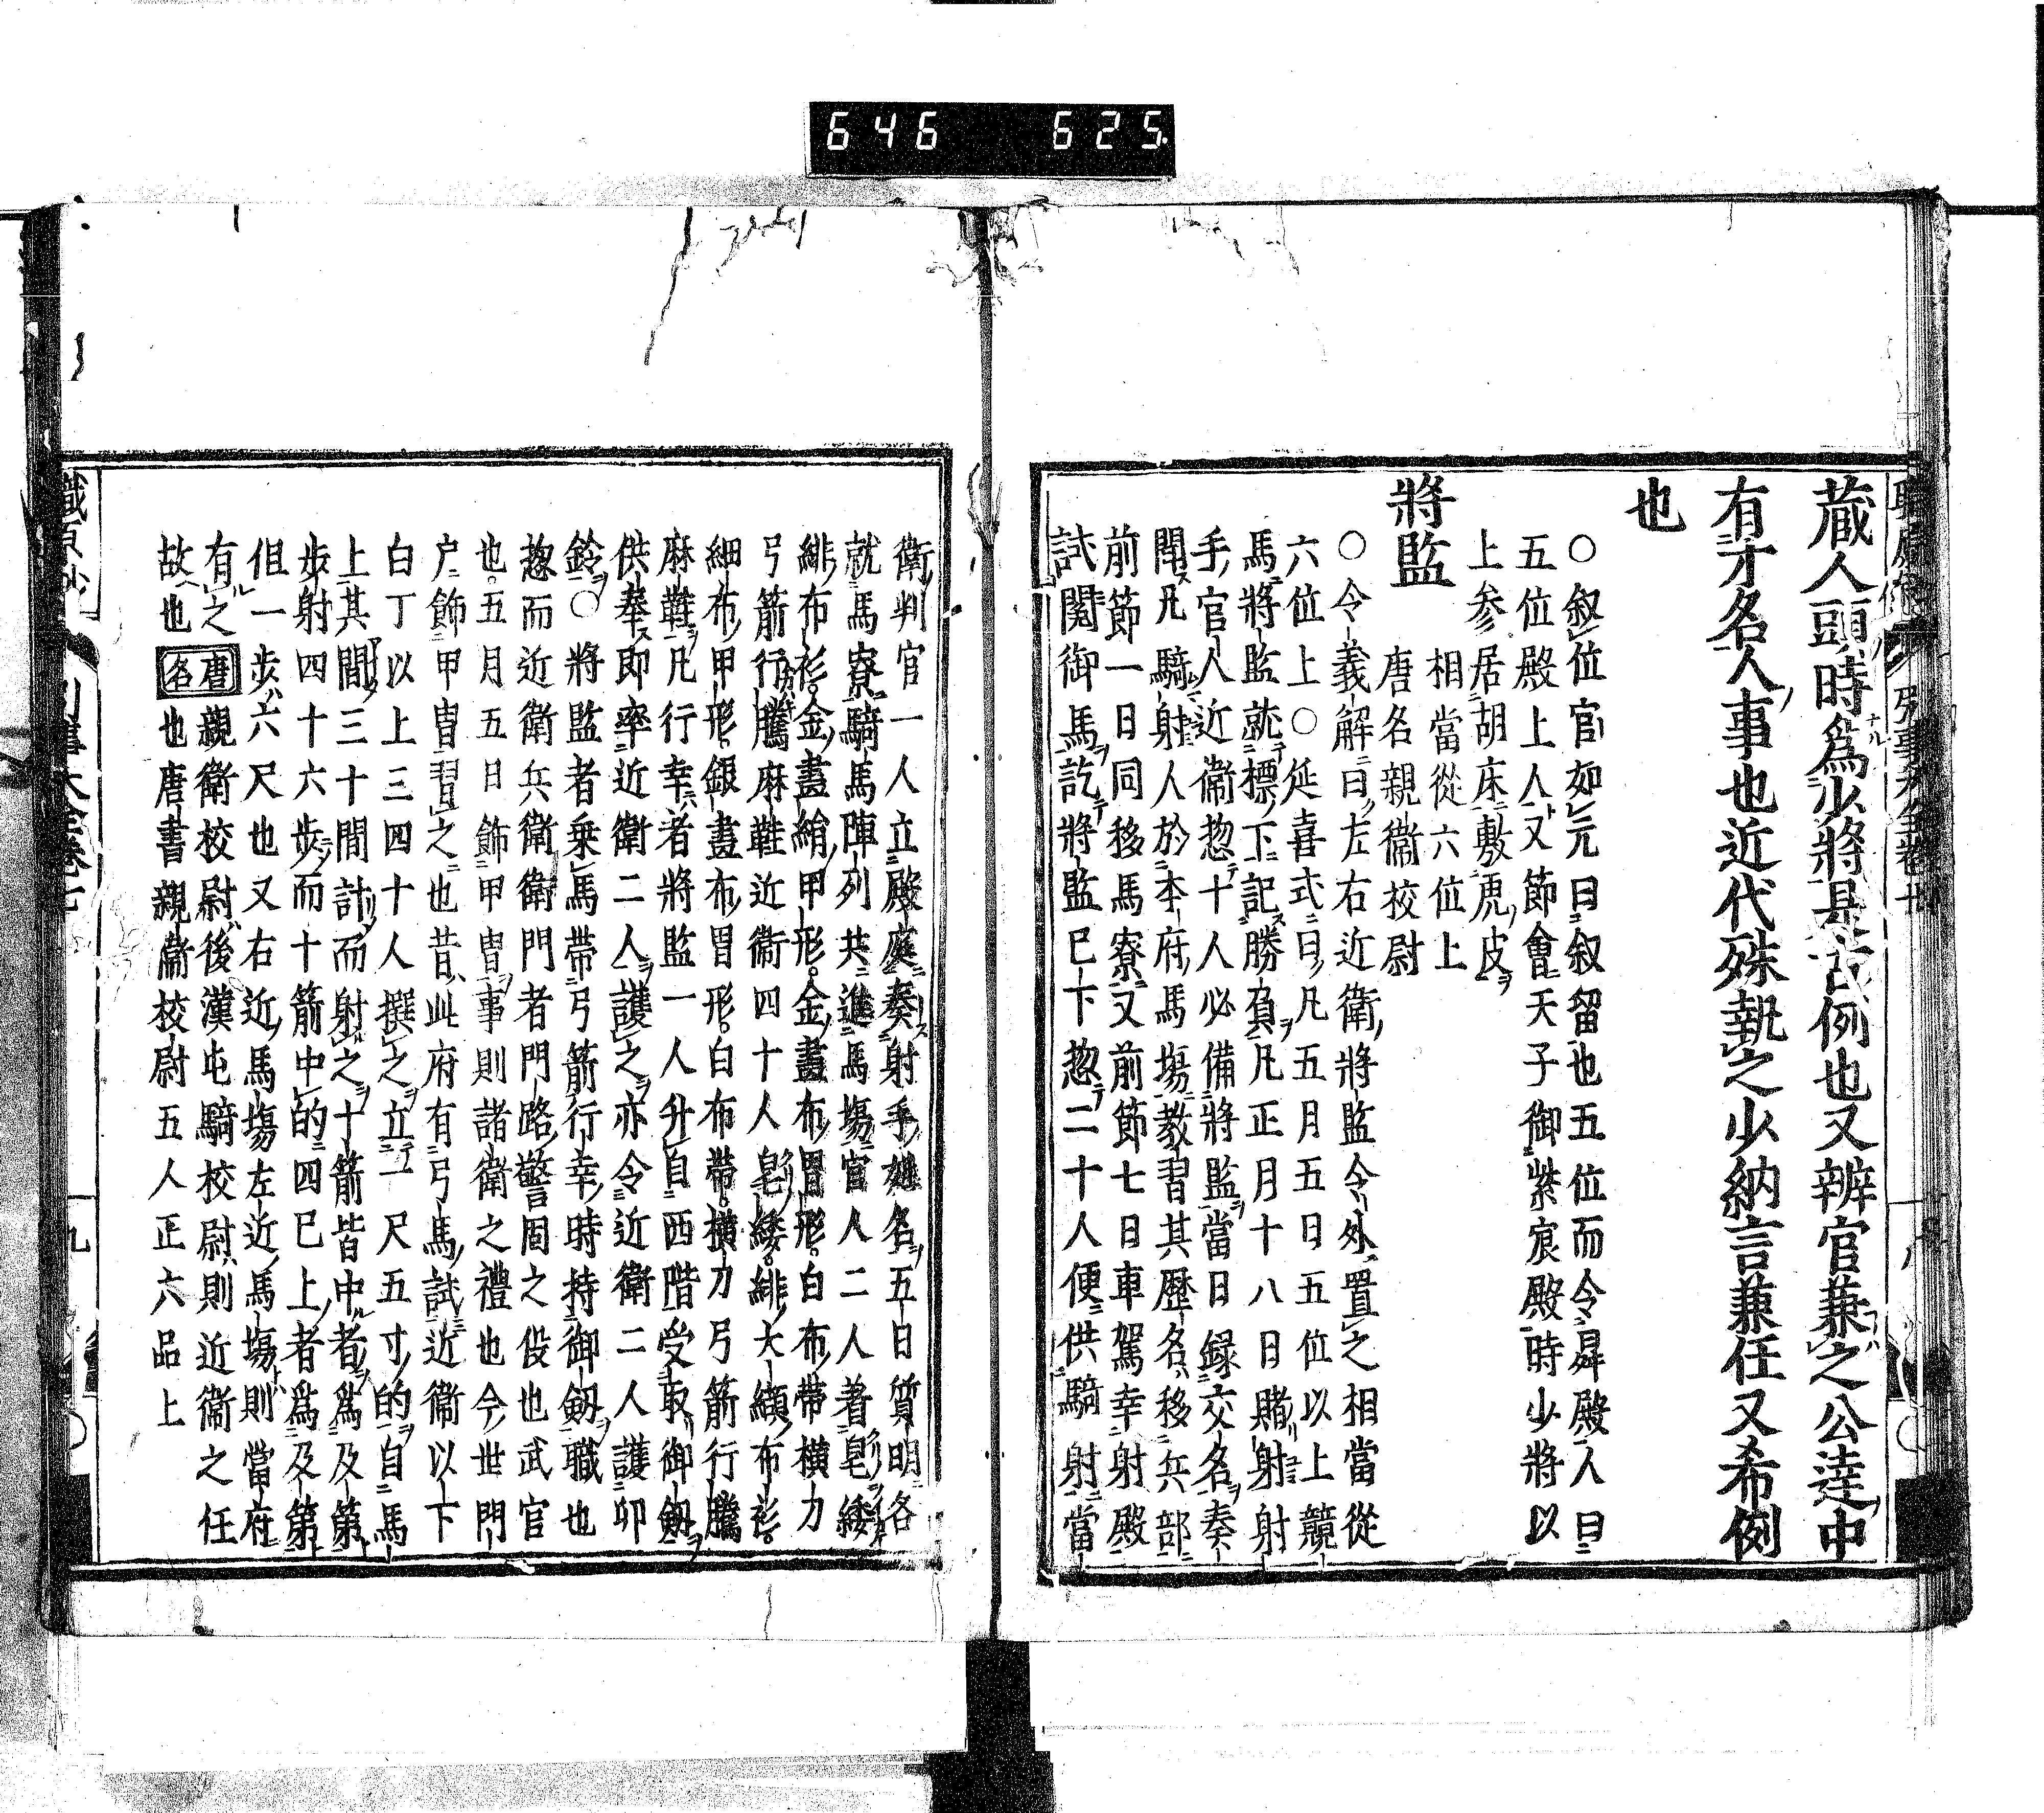 646 625
蔵人頭時爲少將是古例也又辨官兼之公達中
有才名人事也近代殊執之少納言兼任又希例
也
○叙位官如元曰叙留也五位而令昇殿人曰
五位殿上人又節會天子御紫宸殿時少將以
上参居胡床敷虎皮
將監
相當從六位上
唐名親衞校尉
○令義解曰左右近衛將監令外置之相當從
六位上○延喜式曰凡五月五日五位以上競
馬將監就標下記勝負凡正月十八日賭射射
手官人近衞惣十人必備將監當日録交名奏
聞凡騎射人於本府馬塲教習其歷名移兵部
前節一日同移馬寮又前節七日車駕幸射殿
試閲御馬訖將監已下惣二十人便供騎射當
衛判官一人立殿庭奏射手姓名五日質明各
就馬寮騎馬陣列共進馬塲官人二人着皂緌
緋布衫金畫絹甲形金畫布冑形白布帶横刀
弓箭行騰麻鞋近衞四十人皂緌緋大纈布衫
細布甲形銀畫布冑形白布帶横刀弓箭行騰
麻鞋凡行幸者將監一人升自西階受取御劔
供奉即率近衛二人護之亦令近衛二人護印
鈴○將監者乗馬帶弓箭行幸時持御劔職也
惣而近衛兵衛衛門者門路警固之役也武官
也五月五日飾甲冑事則諸衛之禮也今世門
户飾甲冑習之也昔此府有弓馬試近衞以下
白丁以上三四十人撰之立一尺五寸的自馬
上其間三十間計而射之十箭皆中者爲及第
歩射四十六歩而十箭中的四已上者爲及第
但一歩六尺也又右近馬塲左近馬塲則當府
有之唐親衛校尉後漢屯騎校尉則近衞之任
故也名也唐書親衞校尉五人正六品上
九